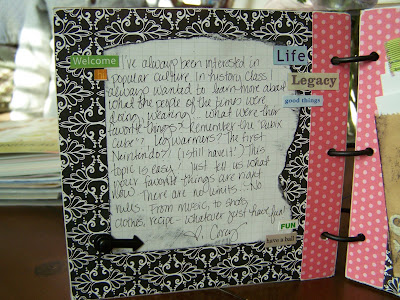 Welcome
I've always been interested in
popular culture. In history class I
always wanted to learn more about
what the people of the times were
doing, wearing... what were their
favorite things? Remember the Rubix
Cube? Legwarmers? The first
Nintendo? (I still have it!) This
topic is easy. Just tell us what
your favorite things are right
now. There are no limits... No
rules. From music, to shoes,
clothes, recipe - whatever just have fun!
Corey
Life
Legacy
good things
FUN
have a ball